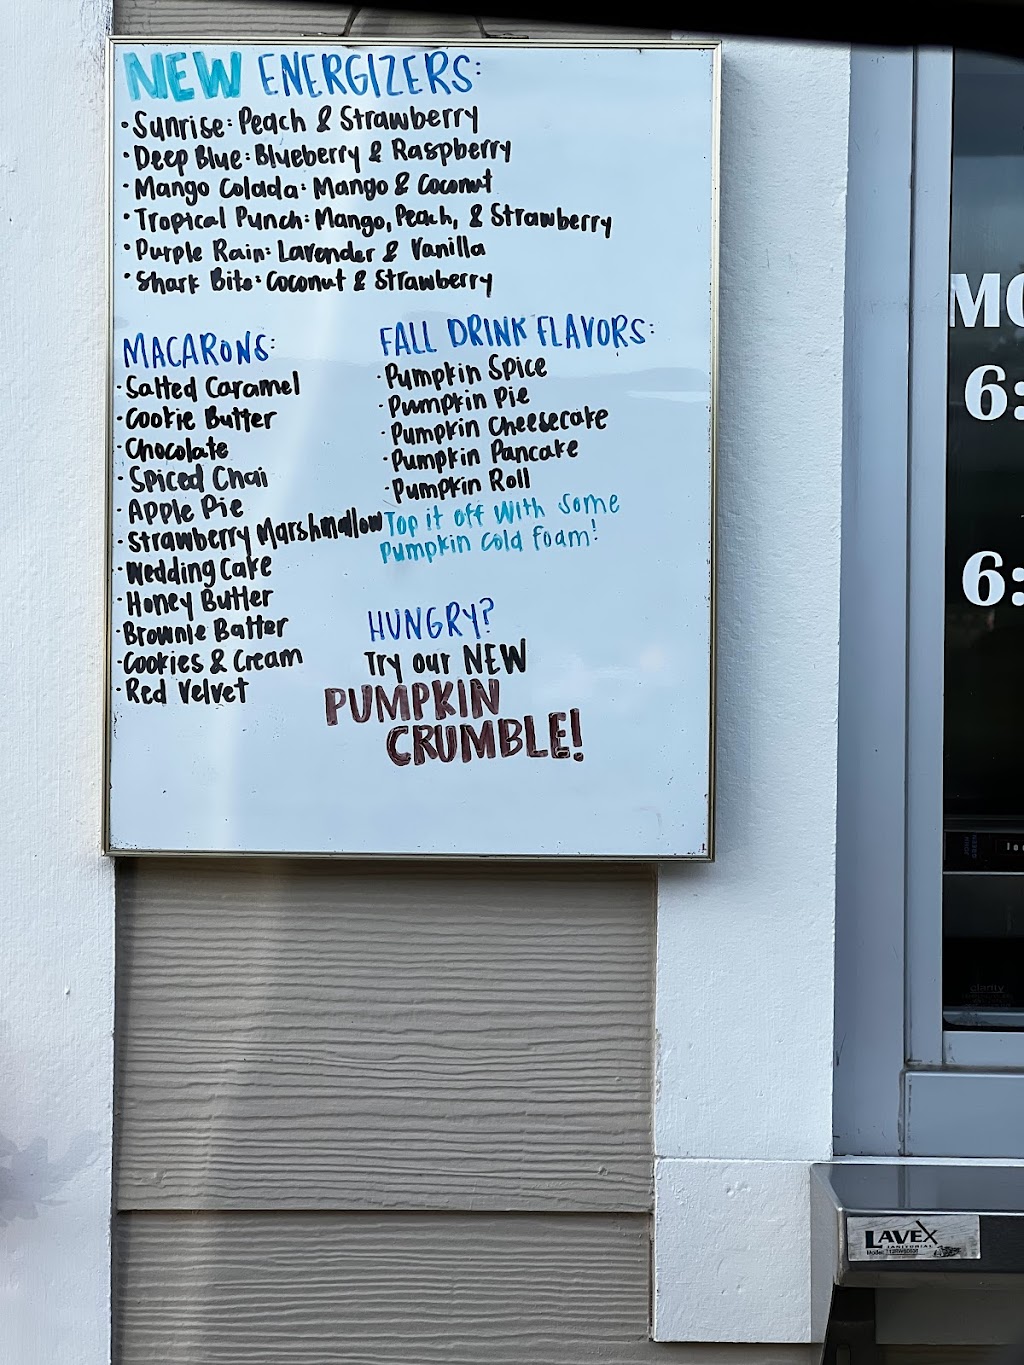 NEW ENERGIZERS:
• Sunrise: Peach & Strawberry
• Deep Blue: Blueberry & Raspberry
• Mango Colada: Mango & Coconut
• Tropical Punch: Mango, Peach, & Strawberry
• Purple Rain: Lavender & Vanilla
• Shark Bite: Coconut & Strawberry
MACARONS:
• Salted Caramel
• Cookie Butter
• Chocolate
• Spiced Chai
• Apple Pie
• Strawberry Marshmallow
• Wedding Cake
• Honey Butter
• Brownie Batter
• Cookies & Cream
• Red Velvet
FALL DRINK FLAVORS:
• Pumpkin Spice
• Pumpkin Pie
• Pumpkin Cheesecake
• Pumpkin Pancake
• Pumpkin Roll
Top it off with some
Pumpkin cold foam!
HUNGRY?
Try our NEW
PUMPKIN
CRUMBLE!
6:
6:
clarity
LAVEX
JANITORIAL